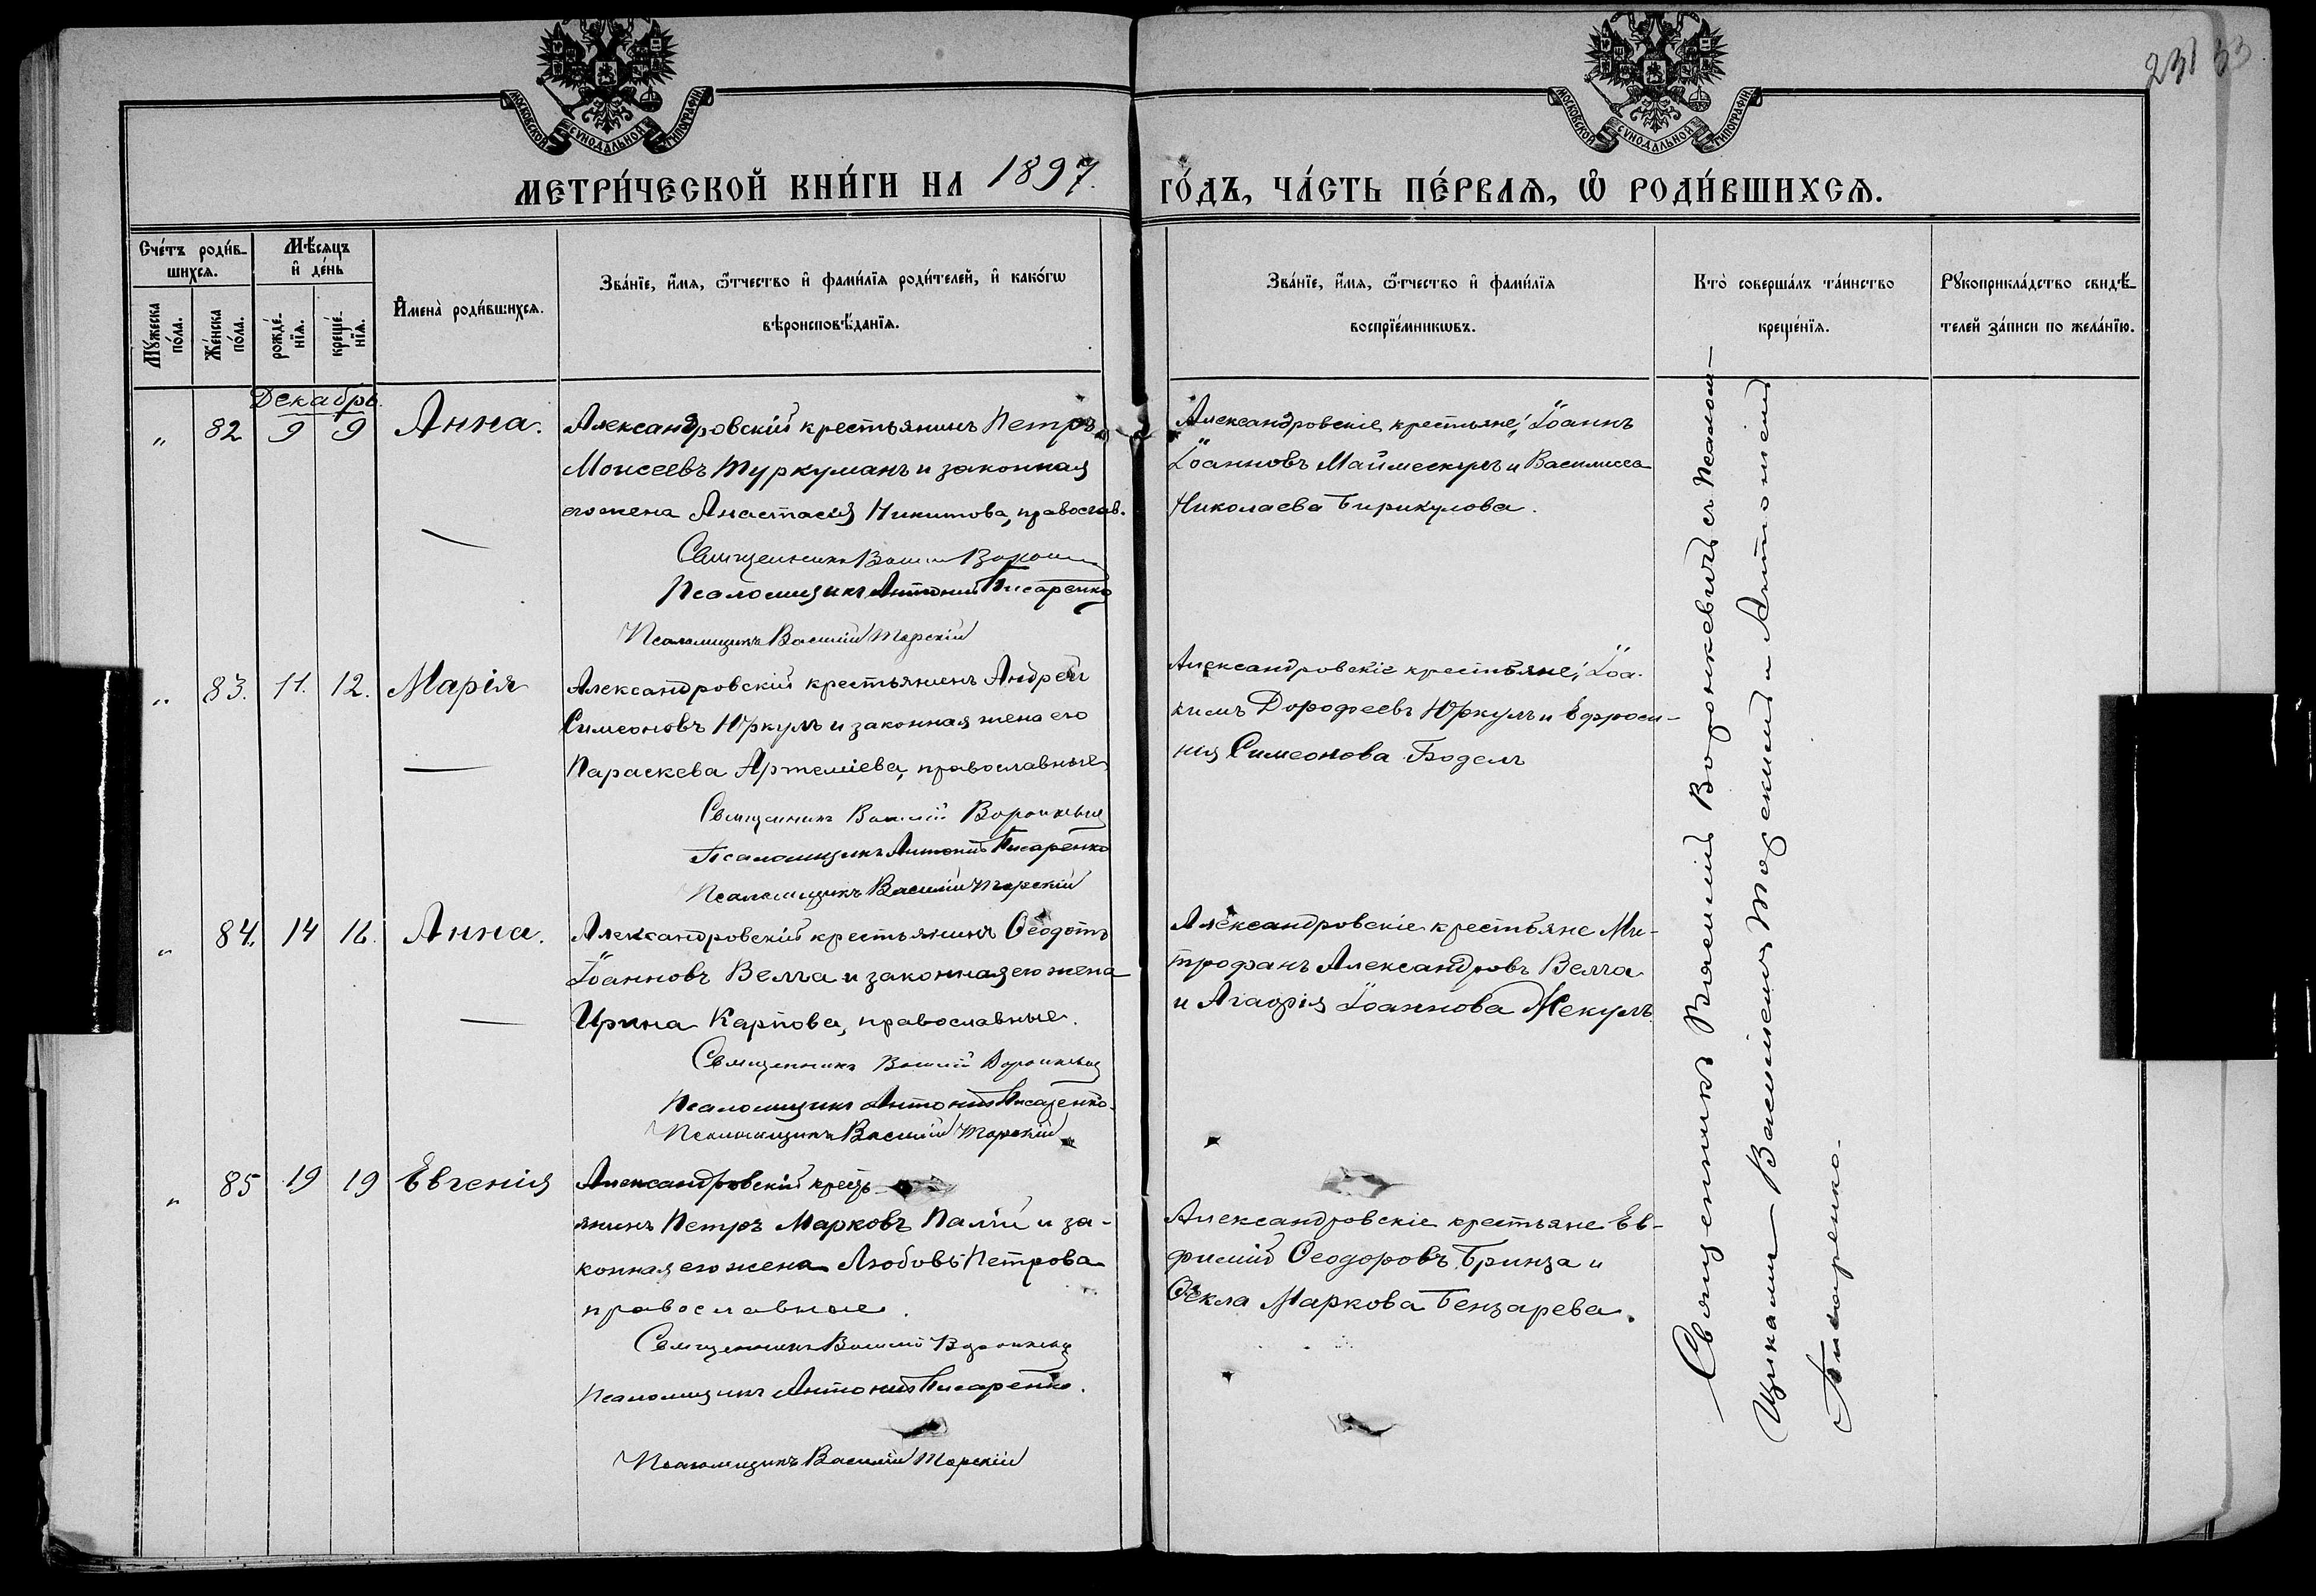 МОСКОВСКОЙ СѴНОДАЛЬНОЙ ТИПОГРАФІИ
МОСКОВСКОЙ СѴНОДАЛЬНОЙ ТИПОГРАФІИ
231 33
МЕТРИ́ЧЕСКОЙ КНИ́ГИ НА 1897. ГО́ДЪ, ЧА́СТЬ ПЕ́РВАѦ, Ѡ҆ РОДИ́ВШИХСѦ.
Сче́тъ роди́в-
шихсѧ.
Мѣ́сѧцъ
и҆ де́нь
Му́жеска
по́ла.
Же́нска
по́ла.
рожде́-
нїѧ.
креще́-
нїѧ.
И҆мена̀ роди́вшихсѧ.
Зва́нїе, и҆́мѧ, ѻ҆́тчество и҆ фами́лїѧ роди́телей, и҆ како́гѡ
вѣроисповѣ́данїѧ.
Зва́нїе, и҆́мѧ, ѻ҆́тчество и҆ фами́лїѧ
воспрїе́мникѡвъ.
Кто̀ соверша́лъ та́инство
креще́нїѧ.
Рꙋкоприкла́дство свидѣ́-
телей за́писи по жела́нїю.
Декабрь.
" 82 9 9 Анна.
Александровскій крестьянинъ Петръ
Моисеевъ Туркуманъ и законная
его жена Анастасія Никитова, православ.
Священникъ Василій
Псаломщикъ Антоній Писаренко
Псаломщикъ Василій Торскій
Александровскіе крестьяне: Іоаннъ
Іоанновъ Маймескулъ и Василисса
Николаева Бирикулова.
" 83. 11. 12. Марія
Александровскій крестьянинъ Андрей
Симеоновъ Юркулъ и законная жена его
Параскева Артеміева, православные
Священникъ Василій Воронкевич
Псаломщикъ Антоній Писаренко
Псаломщикъ Василій Торскій
Александровскіе крестьяне: Іоа-
кимъ Дорофеевъ Юркулъ и Ефроси-
нія Симеонова Боделъ
" 84. 14 16. Анна.
Александровскій крестьянинъ Ѳеодотъ
Іоанновъ Велча и законная его жена
Ирина Карпова, православные.
Священникъ Василій Воронкевич
Псаломщикъ Антоній Писаренко.
Псаломщикъ Василій Торскій
Александровскіе крестьяне Ми-
трофанъ Александровъ Велча
и Агафія Іоаннова Жекулъ.
" 85 19 19 Евгенія
Александровскій кресть-
янинъ Петръ Марковъ Палій и за-
конная его жена Любовь Петрова
православные.
Священникъ Василій Воронкевич
Псаломщикъ Антоній Писаренко.
Псаломщикъ Василій Торскій
Александровскіе крестьяне Ев-
фимій Ѳеодоровъ Бринза и
Ѳекла Маркова Бензарева.
Священникъ Василій Воронкевичъ съ Псалом-
щиками Василіемъ Торскимъ и Антоніемъ
Писаренко.